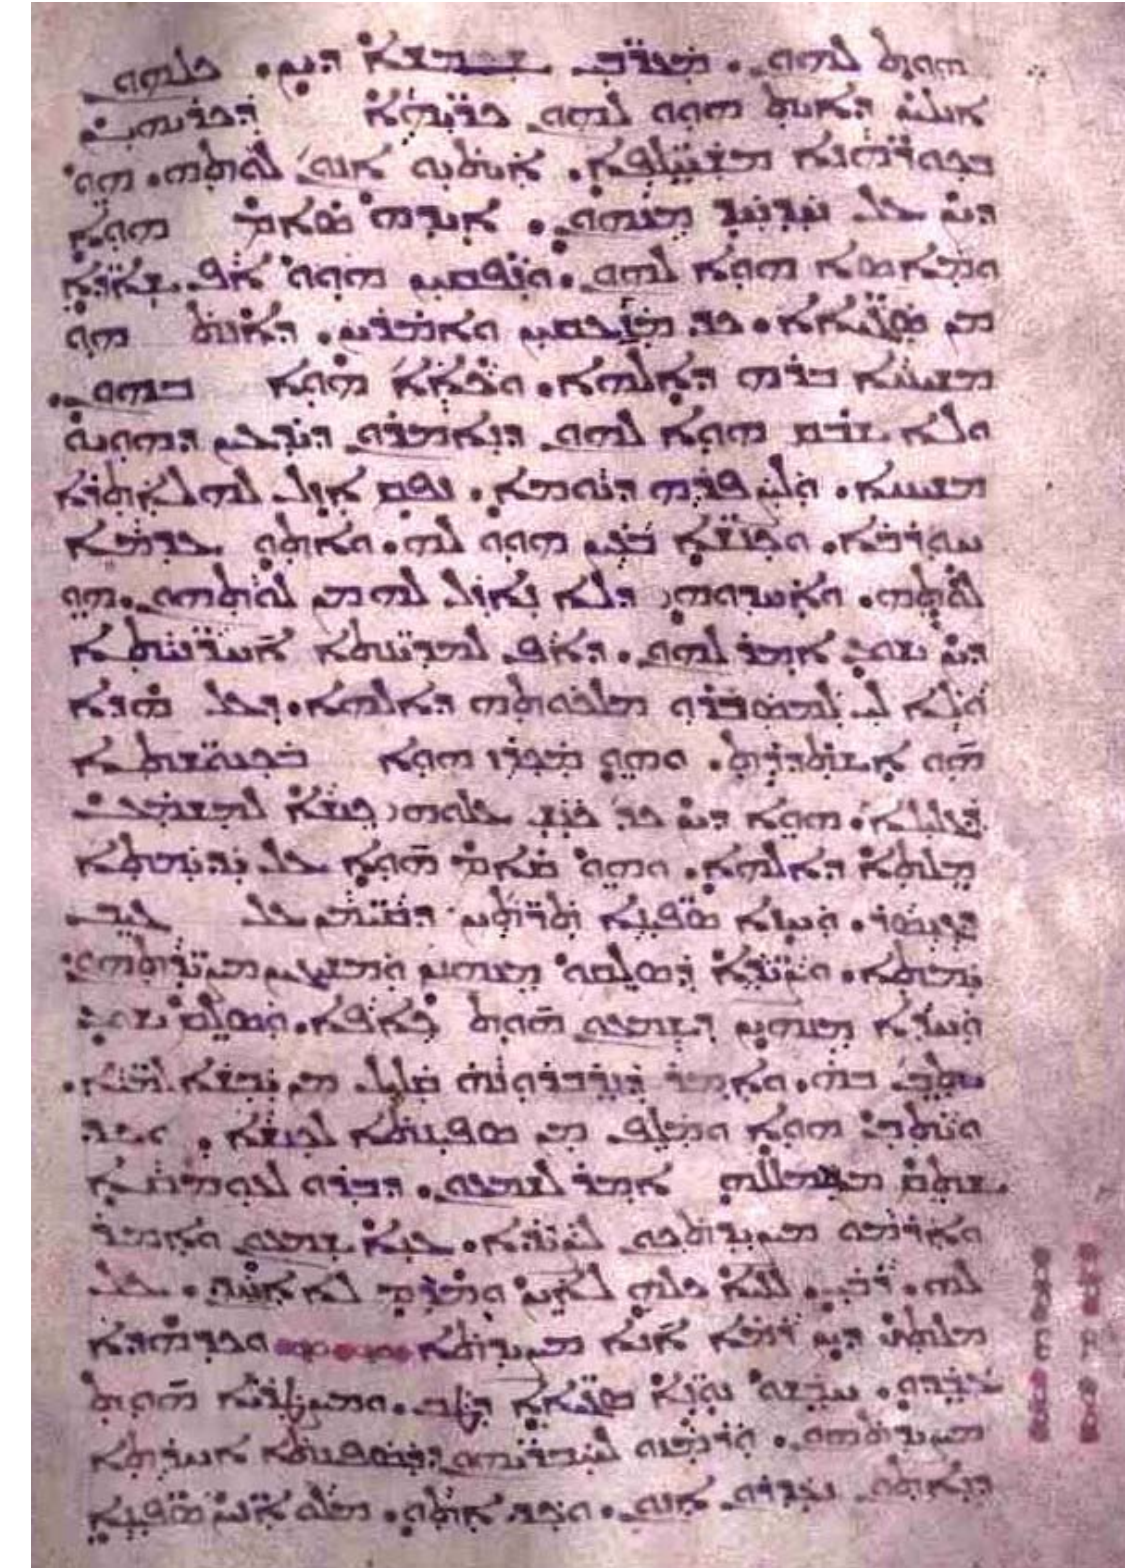 ܗܘܬ ܠܗܘܢ. ܡܥܪ̈ܒܝ ܫܡܫܐ ܕܝܢ. ܟܠܗܘܢ
ܐܝܠܝܢ ܕܐܝܬ ܗܘܘ ܠܗܘܢ ܟܪ̈ܝܗܐ ܕܟܪܝܗܝܢ
ܒܟܘܪ̈ܗܢܐ ܡܫܚ̈ܠܦܐ. ܐܝܬܝܘ ܐܢܘܢ ܠܘܬܗ. ܗܘ
ܕܝܢ ܥܠ ܚܕܚܕ ܡܢܗܘܢ. ܐܝܕܗ ܣܐܡ ܗܘܐ
ܘܡܐܣܐ ܗܘܐ ܠܗܘܢ. ܘܢܦܩܝܢ ܗܘܘ ܐܦ ܫܐܕ̈ܐ
ܡܢ ܣܓܝ̈ܐܐ. ܟܕ ܡܙܥܩܝܢ ܘܐܡܪܝܢ. ܕܐܢܬ ܗܘ
ܡܫܝܚܐ ܒܪܗ ܕܐܠܗܐ. ܘܟܐܐ ܗܘܐ ܒܗܘܢ.
ܘܠܐ ܫܒܩ ܗܘܐ ܠܗܘܢ ܕܢܐܡܪܘܢ ܕܝܕܥܝܢ ܕܗܘܝܘ
ܡܫܝܚܐ. ܘܠܨܦܪܗ ܕܝܘܡܐ. ܢܦܩ ܐܙܠ ܠܗ ܠܐܬܪܐ
ܚܘܪܒܐ. ܘܟܢܫ̈ܐ ܒܥܝܢ ܗܘܘ ܠܗ. ܘܐܬܘ ܥܕܡܐ
ܠܘܬܗ. ܘܐܚܕܘܗܝ ܕܠܐ ܢܐܙܠ ܠܗ ܡܢ ܠܘܬܗܘܢ. ܗܘ
ܕܝܢ ܝܫܘܥ ܐܡܪ ܠܗܘܢ. ܕܐܦ ܠܡܕܝ̈ܢܬܐ ܐܚܪ̈ܢܝܬܐ
ܘܠܐ ܠܝ ܠܡܣܒܪܘ ܡܠܟܘܬܗ ܕܐܠܗܐ. ܕܥܠ ܗܕܐ
ܗܘ ܐܫܬܕܪܬ. ܘܗܘ ܡܟܪܙ ܗܘܐ ܒܟܢܘܫ̈ܬܐ
ܕܓܠܝܠܐ. ܗܘܐ ܕܝܢ ܟܕ ܟܢܫ ܥܠܘܗܝ ܟܢܫܐ ܠܡܫܡܥ
ܡܠܬܐ ܕܐܠܗܐ. ܘܗܘ ܩܐܡ ܗܘܐ ܥܠ ܝܕ ܝܡܬܐ
ܕܓܢܣܪ. ܚܙܐ ܣܦܝ̈ܢܐ ܬܪ̈ܬܝܢ ܕܩܝ̈ܡܢ ܥܠ ܓܢܒ
ܝܡܬܐ. ܘܨܝ̈ܕܐ ܕܣܠܩܘ ܡܢܗܝܢ ܘܡܫܝܓܝܢ ܡܨܝ̈ܕܬܗܘܢ
ܘܚܕܐ ܡܢܗܝܢ ܕܫܡܥܘܢ ܗܘܬ ܟܐܦܐ. ܘܣܠܩ ܝܫܘܥ
ܝܬܒ ܒܗ. ܘܐܡܪ ܕܢܕܒܪܘܢܗ ܩܠܝܠ ܡܢ ܝܒܫܐ ܠܡܝ̈ܐ.
ܘܝܬܒ ܗܘܐ ܘܡܠܦ ܡܢ ܣܦܝܢܬܐ ܠܟܢܫܐ. ܘܟܕ
ܫܬܩ ܡܢ ܡܡܠܠܗ ܐܡܪ ܠܫܡܥܘܢ. ܕܒܪܘ ܠܥܘܡܩܐ
ܘܐܪܡܘ ܡܨܝܕܬܟܘܢ ܠܨܝܕܐ. ܥܢܐ ܫܡܥܘܢ ܘܐܡܪ
ܠܗ. ܪܒܝ ܠܠܝܐ ܟܠܗ ܠܐܝܢ ܘܡܕܡ ܠܐ ܐܚܕܢ. ܥܠ
ܡܠܬܟ ܕܝܢ ܪܡܐ ܐܢܐ ܡܨܝܕܬܐ ܘܟܕ ܗܕܐ
ܥܒܕܘ. ܚܒܫܘ ܢܘ̈ܢܐ ܣܓܝ̈ܐܐ ܕܛܒ. ܘܡܨܛܪܝܐ ܗܘܬ
ܡܨܝܕܬܗܘܢ. ܘܪܡܙܘ ܠܚܒܪ̈ܝܗܘܢ ܕܒܣܦܝܢܬܐ ܐܚܪܬܐ
ܕܢܐܬܘܢ ܢܥܕܪܘܢ ܐܢܘܢ. ܘܟܕ ܐܬܘ. ܡܠܘ ܐܢܝܢ ܣܦܝ̈ܢܐ